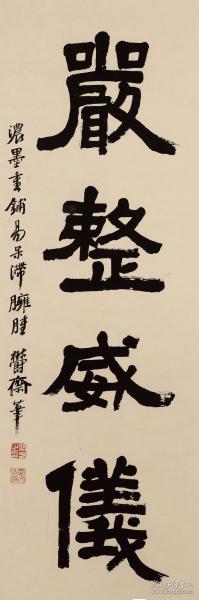 嚴整威儀
濃墨重鋪易呆滯臃腫鬱齋筆